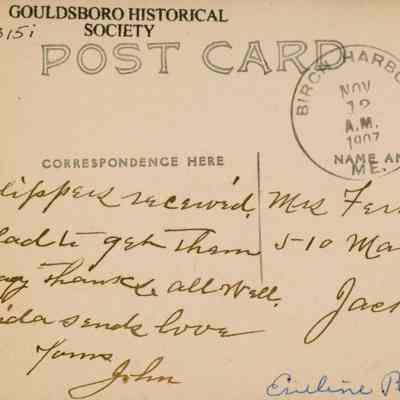 GOULDSBORO HISTORICAL
SOCIETY
315i
POST CARD
BIRCH HARBO
NOV
12
A.M.
1907
ME.
CORRESPONDENCE HERE
NAME AN
lippers received.
lad to get them
ay thanks. all well.
ida sends love
Yours
John
Mrs Fer
510 Ma
Jac
Eveline